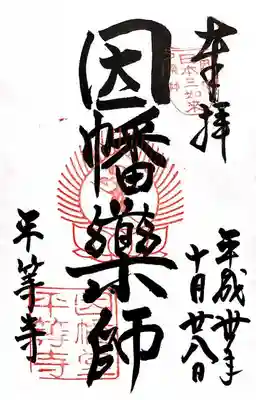 奉拝
日本三如来
平成丗年
十月廿八日
因幡藥師
平等寺
因幡堂
平等寺